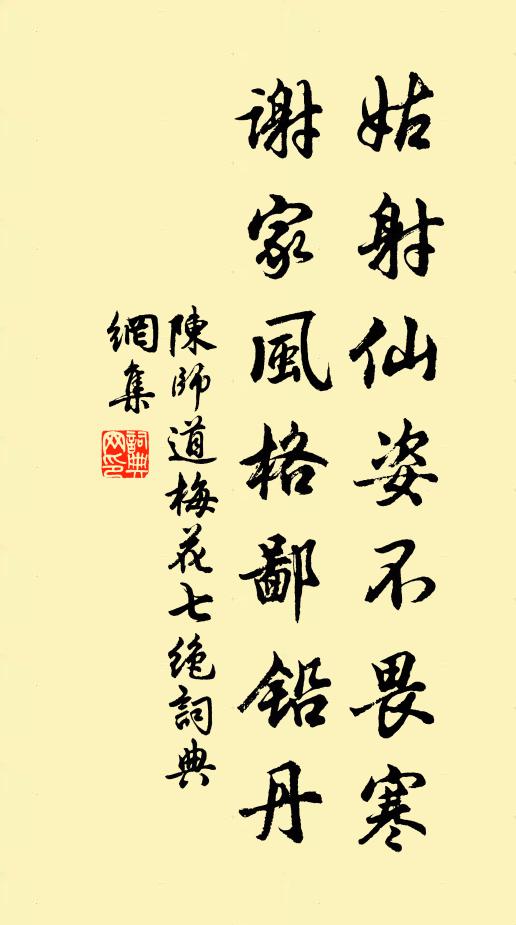 姑射仙姿不畏寒
謝家風格鄙铅丹
陳師道梅花七绝詞典
網集
詞典
网印